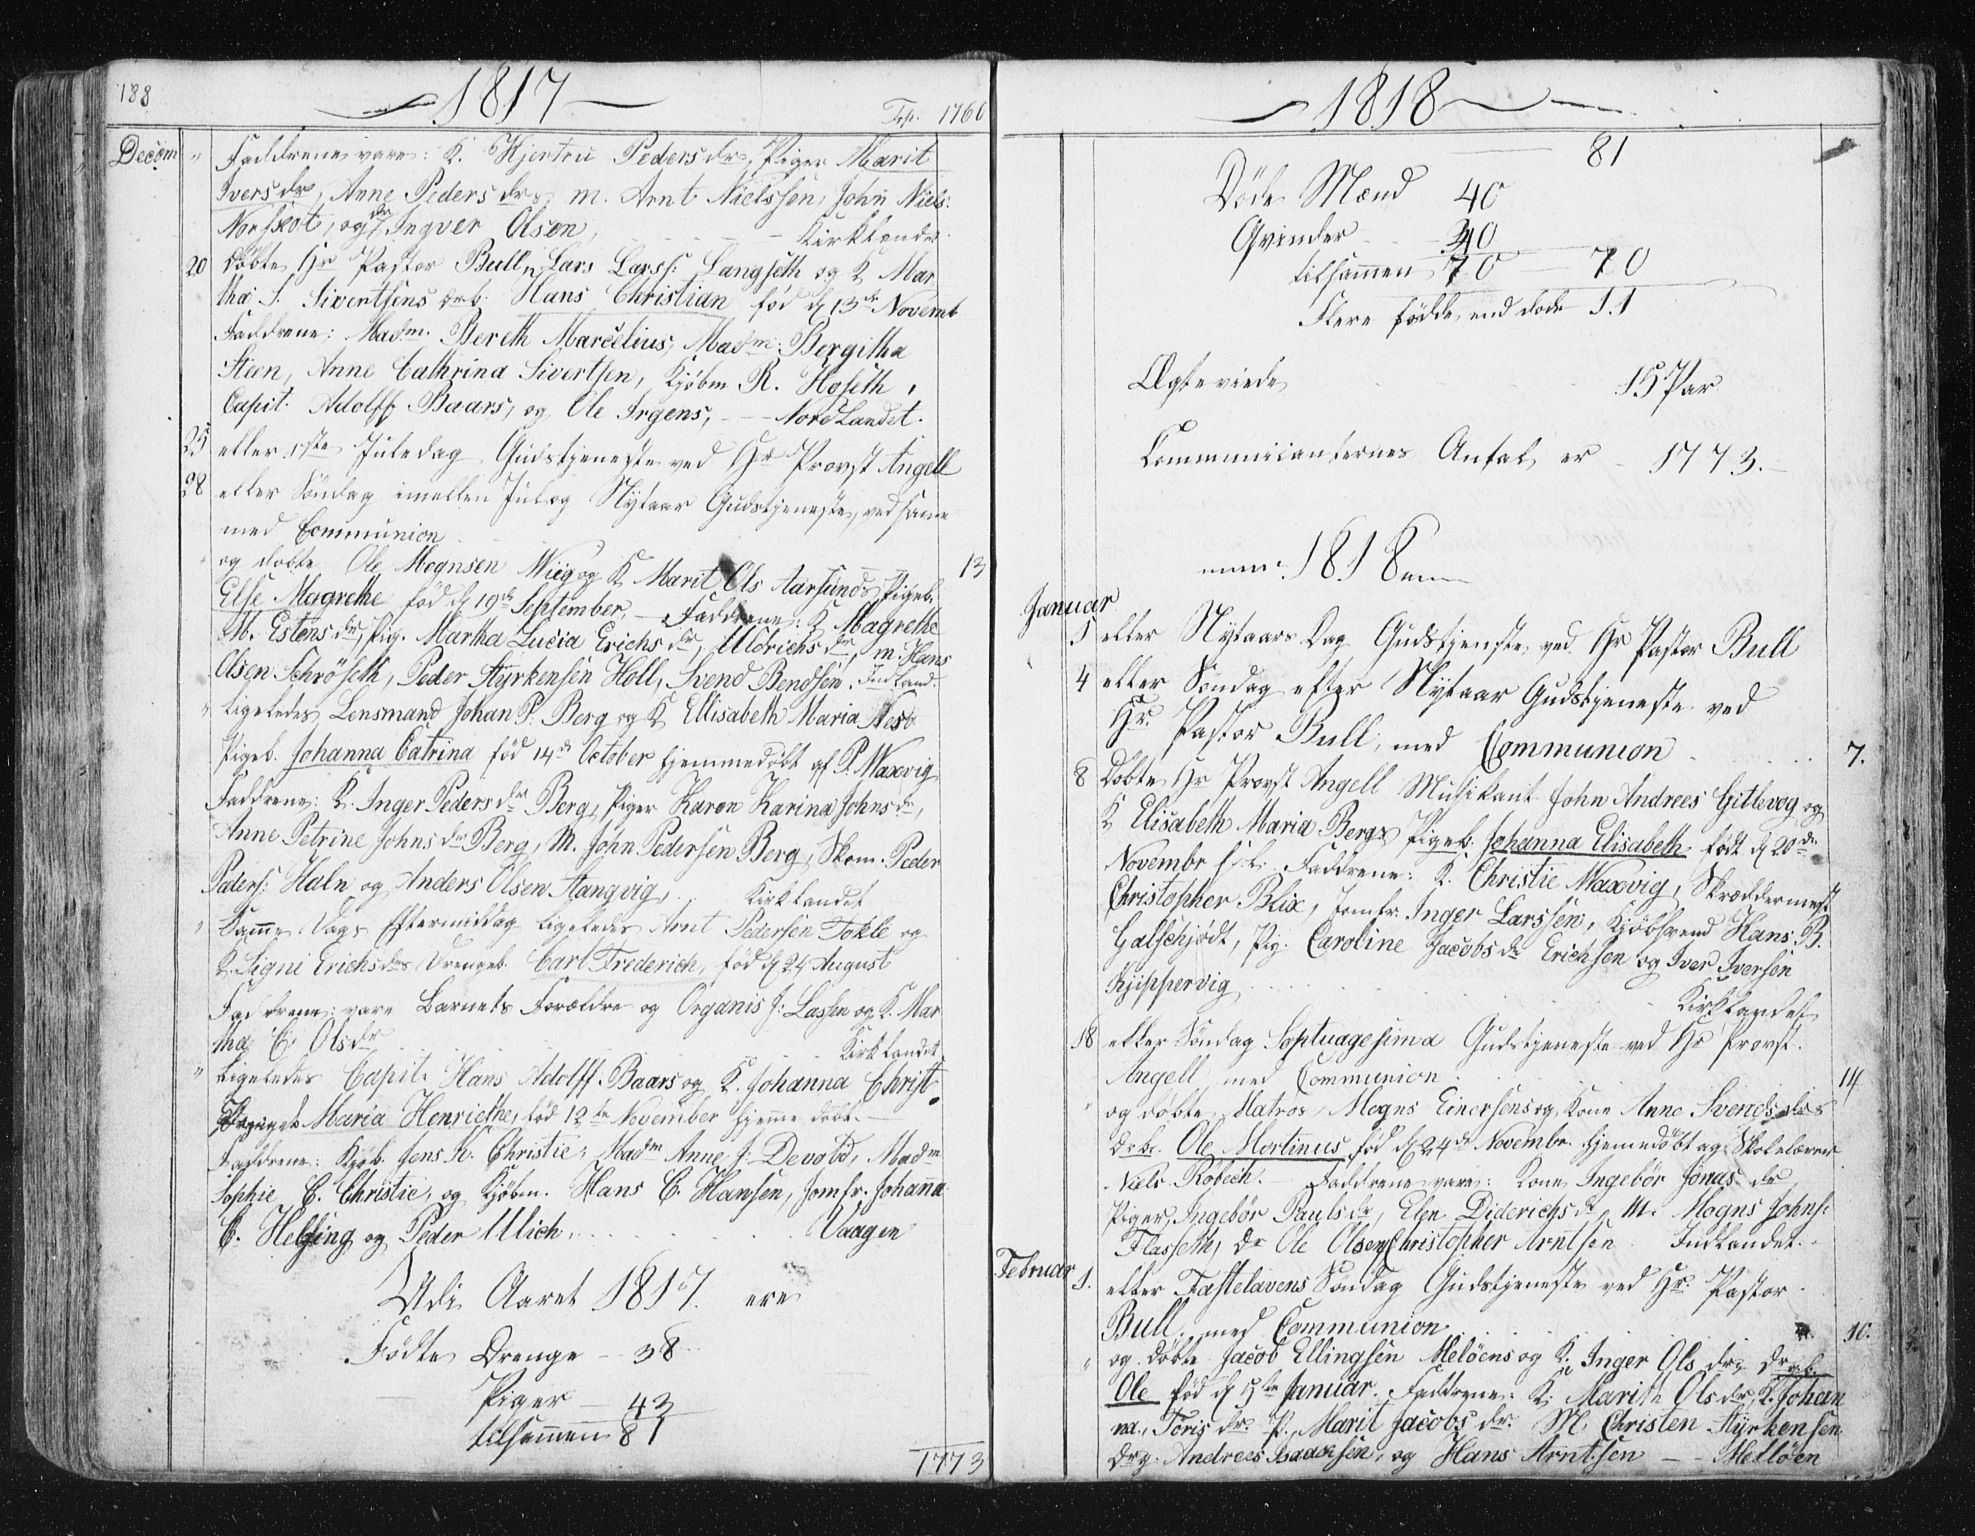 188
1817
Trsp. 1760
Decom
" Faddrene vare: K. Hjertru Peders dr, Piger Marit
Ivers dr, Anne Peders dr, m. Arnt Nielssen, John Niels:
Norskot, og dr Ingver Olsen, Kirklandet
20 döbte Hr Pastor Bull, Lars Larss: Langseth og K Mar
tha S. Sivertsens drb. Hans Christian fød d 13de Novemb
Faddrene: Madm. Bereth Marcelius, Madm: Bergitha
Steen, Anne Cathrina Sivertsen, Kjöbm R. Hoseth,
Capit. Adolff Baars, og Ole Irgens, - - Nordlandet.
25 eller 1ste Juledag Gudstjeneste ved Hr Provst Angell
28 eller Söndag imellem Jul og Nytaar Gudstjeneste, ved samme
med Communion 13
og döbte Ole Mognsen Wiig og K Marit Ols Aarsunds Pigeb.
Else Magrethe fød d 19de September. - Faddrene: K Magrethe
M. Estens dr, Pig. Martha Lucia Erichs dr, Uldrichs dr, m. Hans
Olsen Schröseth, Peder Styrkensen Holl, Svend Bendsen. Indland.
" Ligeledes Lensmand Johan P. Berg og K Ellisabeth Maria Nesb
Pigeb. Johanna Catrina fød 14de October hjemmedöbt af P. Waxvig
Faddrene: K. Inger Peders dr Berg, Piger Karen Karina Johns dr,
Anne Petrine Johns dr Berg, M. John Pedersen Berg, Skom. Peder
Peders: Haln og Anders Olsen Stangvig, Kirklandet
" Samme Dags Eftermiddag ligeledes Arnt Pedersen Tokle og
K. Signi Erichs drs Drengeb. Carl Frederich, fød d 24 August
Faddrene: vare Barnets Forældre og Organis J: Lassen og K. Mar
tha E. Olsdr Kirklandet
" Ligeledes Capit. Hans Adolff. Baars og K. Johanna Christ.
Maria Henriethe, fød 12te November hjemme döbt. -
Faddrene: Kjöb. Jens K. Christie, Madm Anne J: Devold, Madm
Sophie C. Christie, og Kjöbm. Hans C. Hansen, Jomfr. Johanna
C. Helsing og Peder Ulich. Vaagen
Udi Aaret 1817 ere
Födte Drenge - 38
Piger 43
tilsammen 81
1773
1818
81
Döde Mænd 40
Qvinder 30
tilsammen 70 - 70
Flere födde end döde 11
Ægteviede 15 Par
Communicanternes Antal er - 1773.
1818
Januar
1 eller Nytaars Dag Gudstjenste ved Hr Pastor Bull
4 eller Söndag efter Nytaar Gudstjeneste ved
Hr. Pastor Bull, med Communion 7.
8 Döbte Hr Provst Angell Musikant John Andrees Gitlevog og
K Elisabeth Maria Bergs Pigeb. Johanna Elisabeth født d 20de
Novembr f: A. Faddrene: K. Christie Maxvig, Skræddermest
Christopher Blix, Jomfr. Inger Larssen, Kjöbsvend Hans B.
Galschjödt, Pig. Caroline Jacobs dr Erichsen og Iver Iversen
Kjippervig Kirklandet
18 eller Söndag Septuagesima Gudstjeneste ved Hr Provst.
Angell med Communion 14
" og döbte Matros Mogns Einersens og Kone Anne Svends drs
drb. Ole Mortinus fød d 24de Novembr. hjemedöbt af Skolelærer
Niels Rösech. - Faddrene vare: Kone Ingebör Jonas dr
Piger, Ingebör Pauls dr, Elen Diderichs dr, M. Mogns Johns:
Flasseth, dr Ole Olsen, Christopher Arntsen Indlandet.
Februar
1. eller Fastelavens Söndag Gudstjeneste ved Hr. Pastor
Bull. med Communion 10.
" og döbte Jacob Ellingsen Melöens og K. Inger Ols drs drgb.
Ole fød d 5te Januar. Faddrene: K. Marith Ols dr, K. Johan
na, Toris dr. P. Marit Jacobs dr. M. Christen Styrkensen
drg. Andrees Isaacksen, og Hans Arntsen - - Mellöen